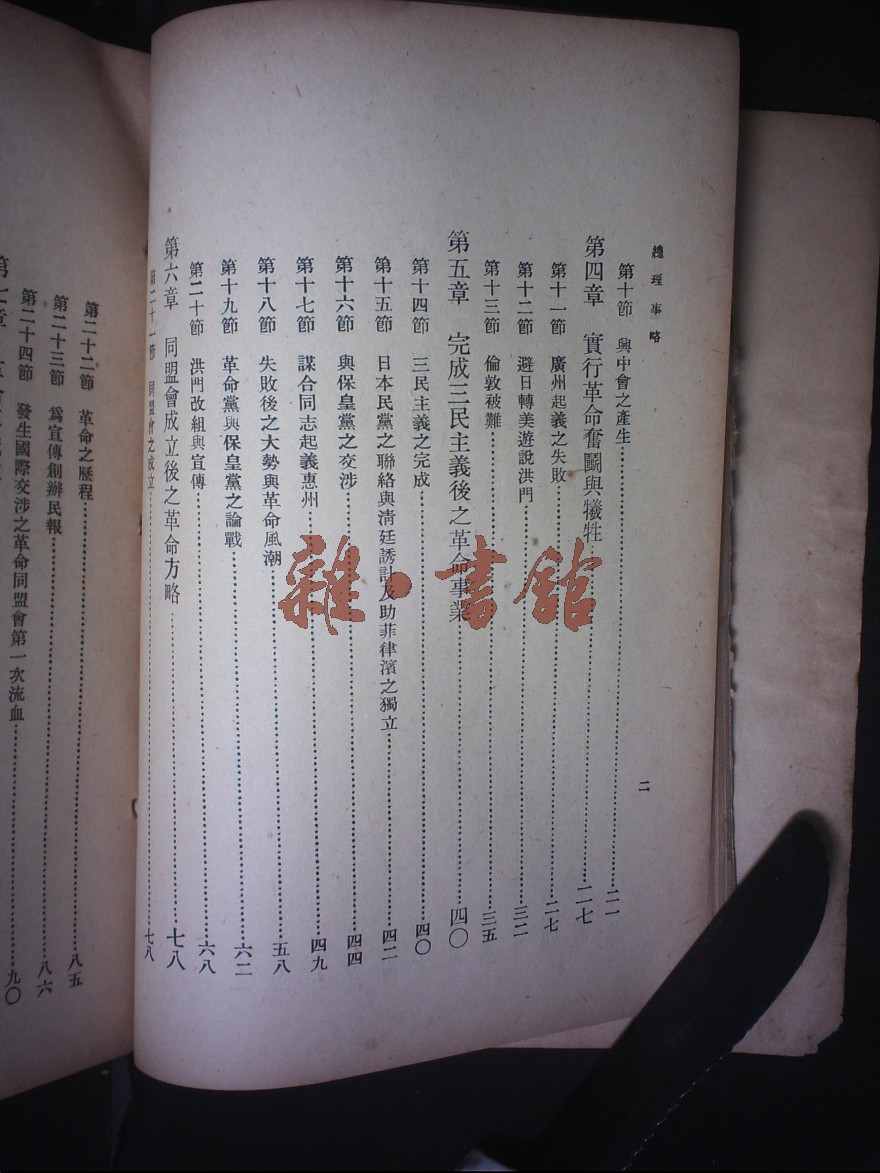 總理事略
二
第十節 興中會之產生……二一
第四章 實行革命奮鬭與犧牲……二七
第十一節 廣州起義之失敗……二七
第十二節 避日轉美遊說洪門……三二
第十三節 倫敦被難……三五
第五章 完成三民主義後之革命事業……四〇
第十四節 三民主義之完成……四〇
第十五節 日本民黨之聯絡與清廷誘計及助菲律濱之獨立……四二
第十六節 與保皇黨之交涉……四四
第十七節 謀合同志起義惠州……四九
第十八節 失敗後之大勢與革命風潮……五八
第十九節 革命黨與保皇黨之論戰……六二
第二十節 洪門改組與宣傳……六八
第六章 同盟會成立後之革命方略……七八
第二十一節 同盟會之成立……七八
第二十二節 革命之歷程……八五
第二十三節 爲宣傳創辦民報……八六
第二十四節 發生國際交涉之革命同盟會第一次流血……九〇
雜·書館